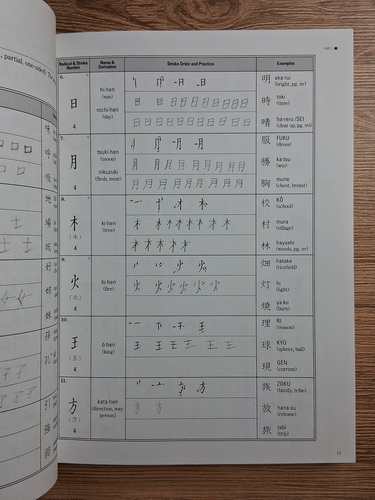 partial, one-sided
Radical & Stroke Number
Name & Derivation
Stroke Order and Practice
Examples
6.
日
4
hi-hen
(sun)
nichi-hen
(day)
明 aka-rui
(bright, pg. xv)
時 toki
(time)
晴 ha-reru /SEI
(clear up, pg. xv)
7.
月
4
tsuki-hen
(moon)
nikuzuki
(flesh, moon)
服 FUKU
(dress)
勝 ka tsu
(win)
胸 mune
(chest, breast)
8.
木
(木)
4
ki-hen
(tree)
校 KŌ
(school)
村 mura
(village)
林 hayashi
(woods, pg. xv)
9.
火
(火)
4
hi-hen
(fire)
畑 hatake
(ricefield)
灯 hi
(light)
焼 ya ku
(burn)
10.
王
(王)
4
ō-hen
(king)
理 RI
(reason)
球 KYŪ
(sphere, ball)
現 GEN
(current)
11.
方
(方)
4
kata-hen
(direction, way, person)
族 ZOKU
(family, tribe)
放 hana su
(release)
旅 tabi
(trip)